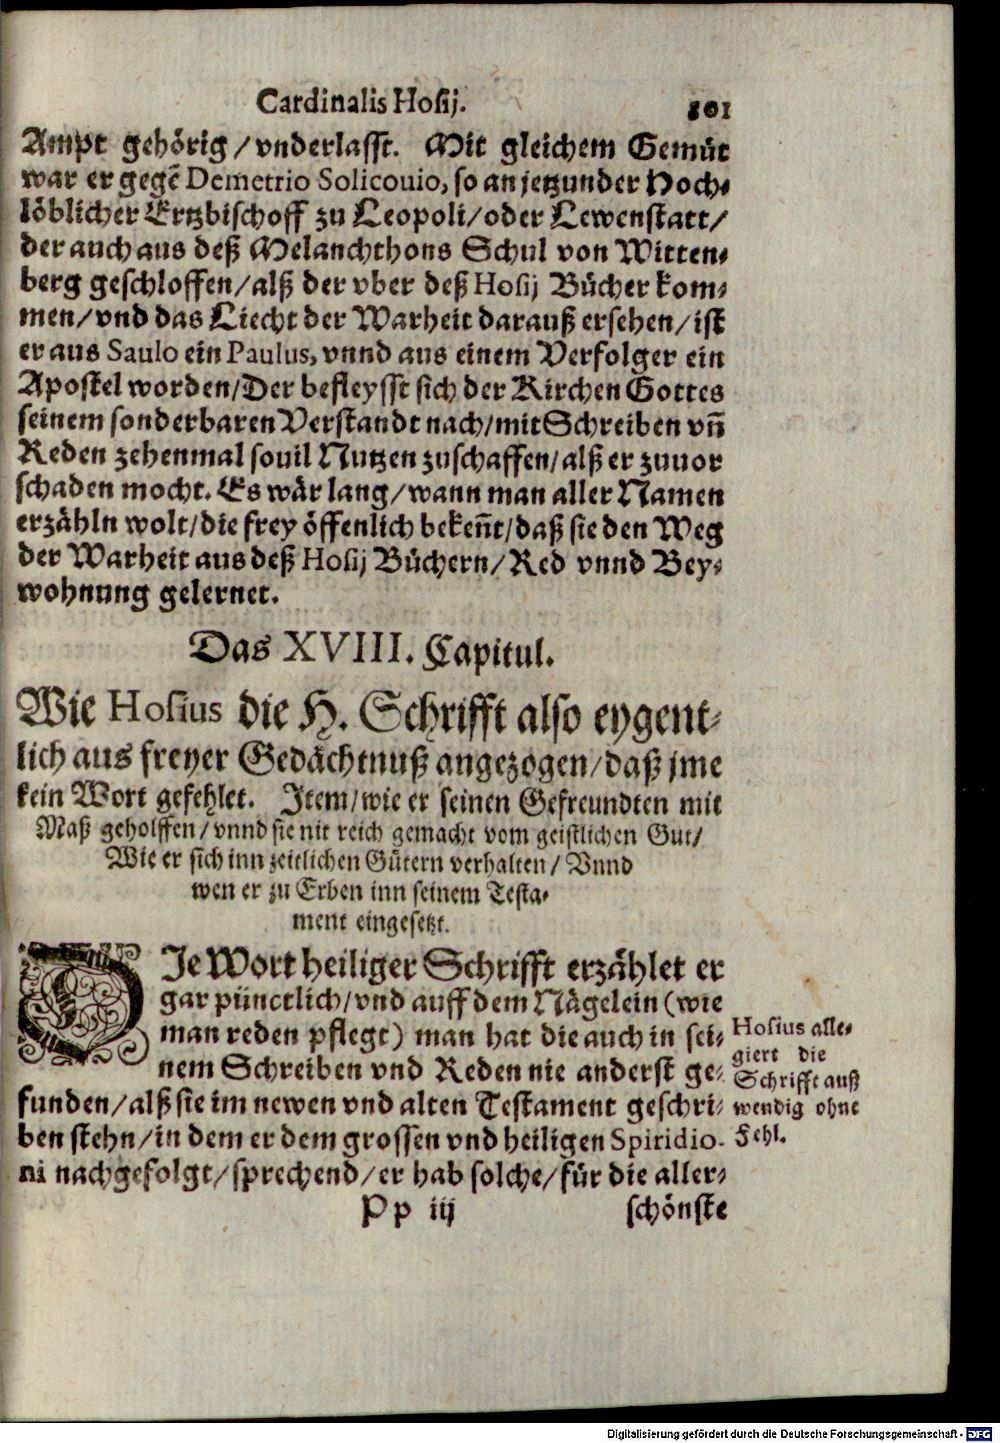 Cardinalis Hosij. 301
Ampt gehörig/vnderlasst. Mit gleichem Gemüt
war er gegẽ Demetrio Solicouio, so an jetzunder Hoch-
löblicher Ertzbischoff zu Leopoli/oder Lewenstatt/
der auch aus deß Melanchthons Schul von Witten-
berg geschloffen/alß der vber deß Hosij Bücher kom-
men/vnd das Liecht der Warheit darauß ersehen/ist
er aus Saulo ein Paulus, vnnd aus einem Verfolger ein
Apostel worden/Der befleysst sich der Kirchen Gottes
seinem sonderbaren Verstandt nach/mit Schreiben vñ
Reden zehenmal souil Nutzen zuschaffen/alß er zuuor
schaden mocht. Es wär lang/wann man aller Namen
erzähln wolt/die frey öffenlich bekeñt/daß sie den Weg
der Warheit aus deß Hosij Büchern/Red vnnd Bey-
wohnung gelernet.
Das XVIII. Capitul.
Wie Hosius die H. Schrifft also eygent-
lich aus freyer Gedächtnuß angezogen/daß jme
kein Wort gefehlet. Item/wie er seinen Gefreundten mit
Maß geholffen/vnnd sie nit reich gemacht vom geistlichen Gut/
Wie er sich inn zeitlichen Gütern verhalten/Vnnd
wen er zu Erben inn seinem Testa-
ment eingesetzt.
DIe Wort heiliger Schrifft erzählet er
gar pünctlich/vnd auff dem Nägelein (wie
man reden pflegt) man hat die auch in sei-
nem Schreiben vnd Reden nie anderst ge-
funden/alß sie im newen vnd alten Testament geschri-
ben stehn/in dem er dem grossen vnd heiligen Spiridio-
ni nachgefolgt/sprechend/er hab solche/für die aller-
Hosius alle-
giert die
Schrifft auß
wendig ohne
Fehl.
Pp iij schönste
Digitalisierung gefördert durch die Deutsche Forschungsgemeinschaft - DFG